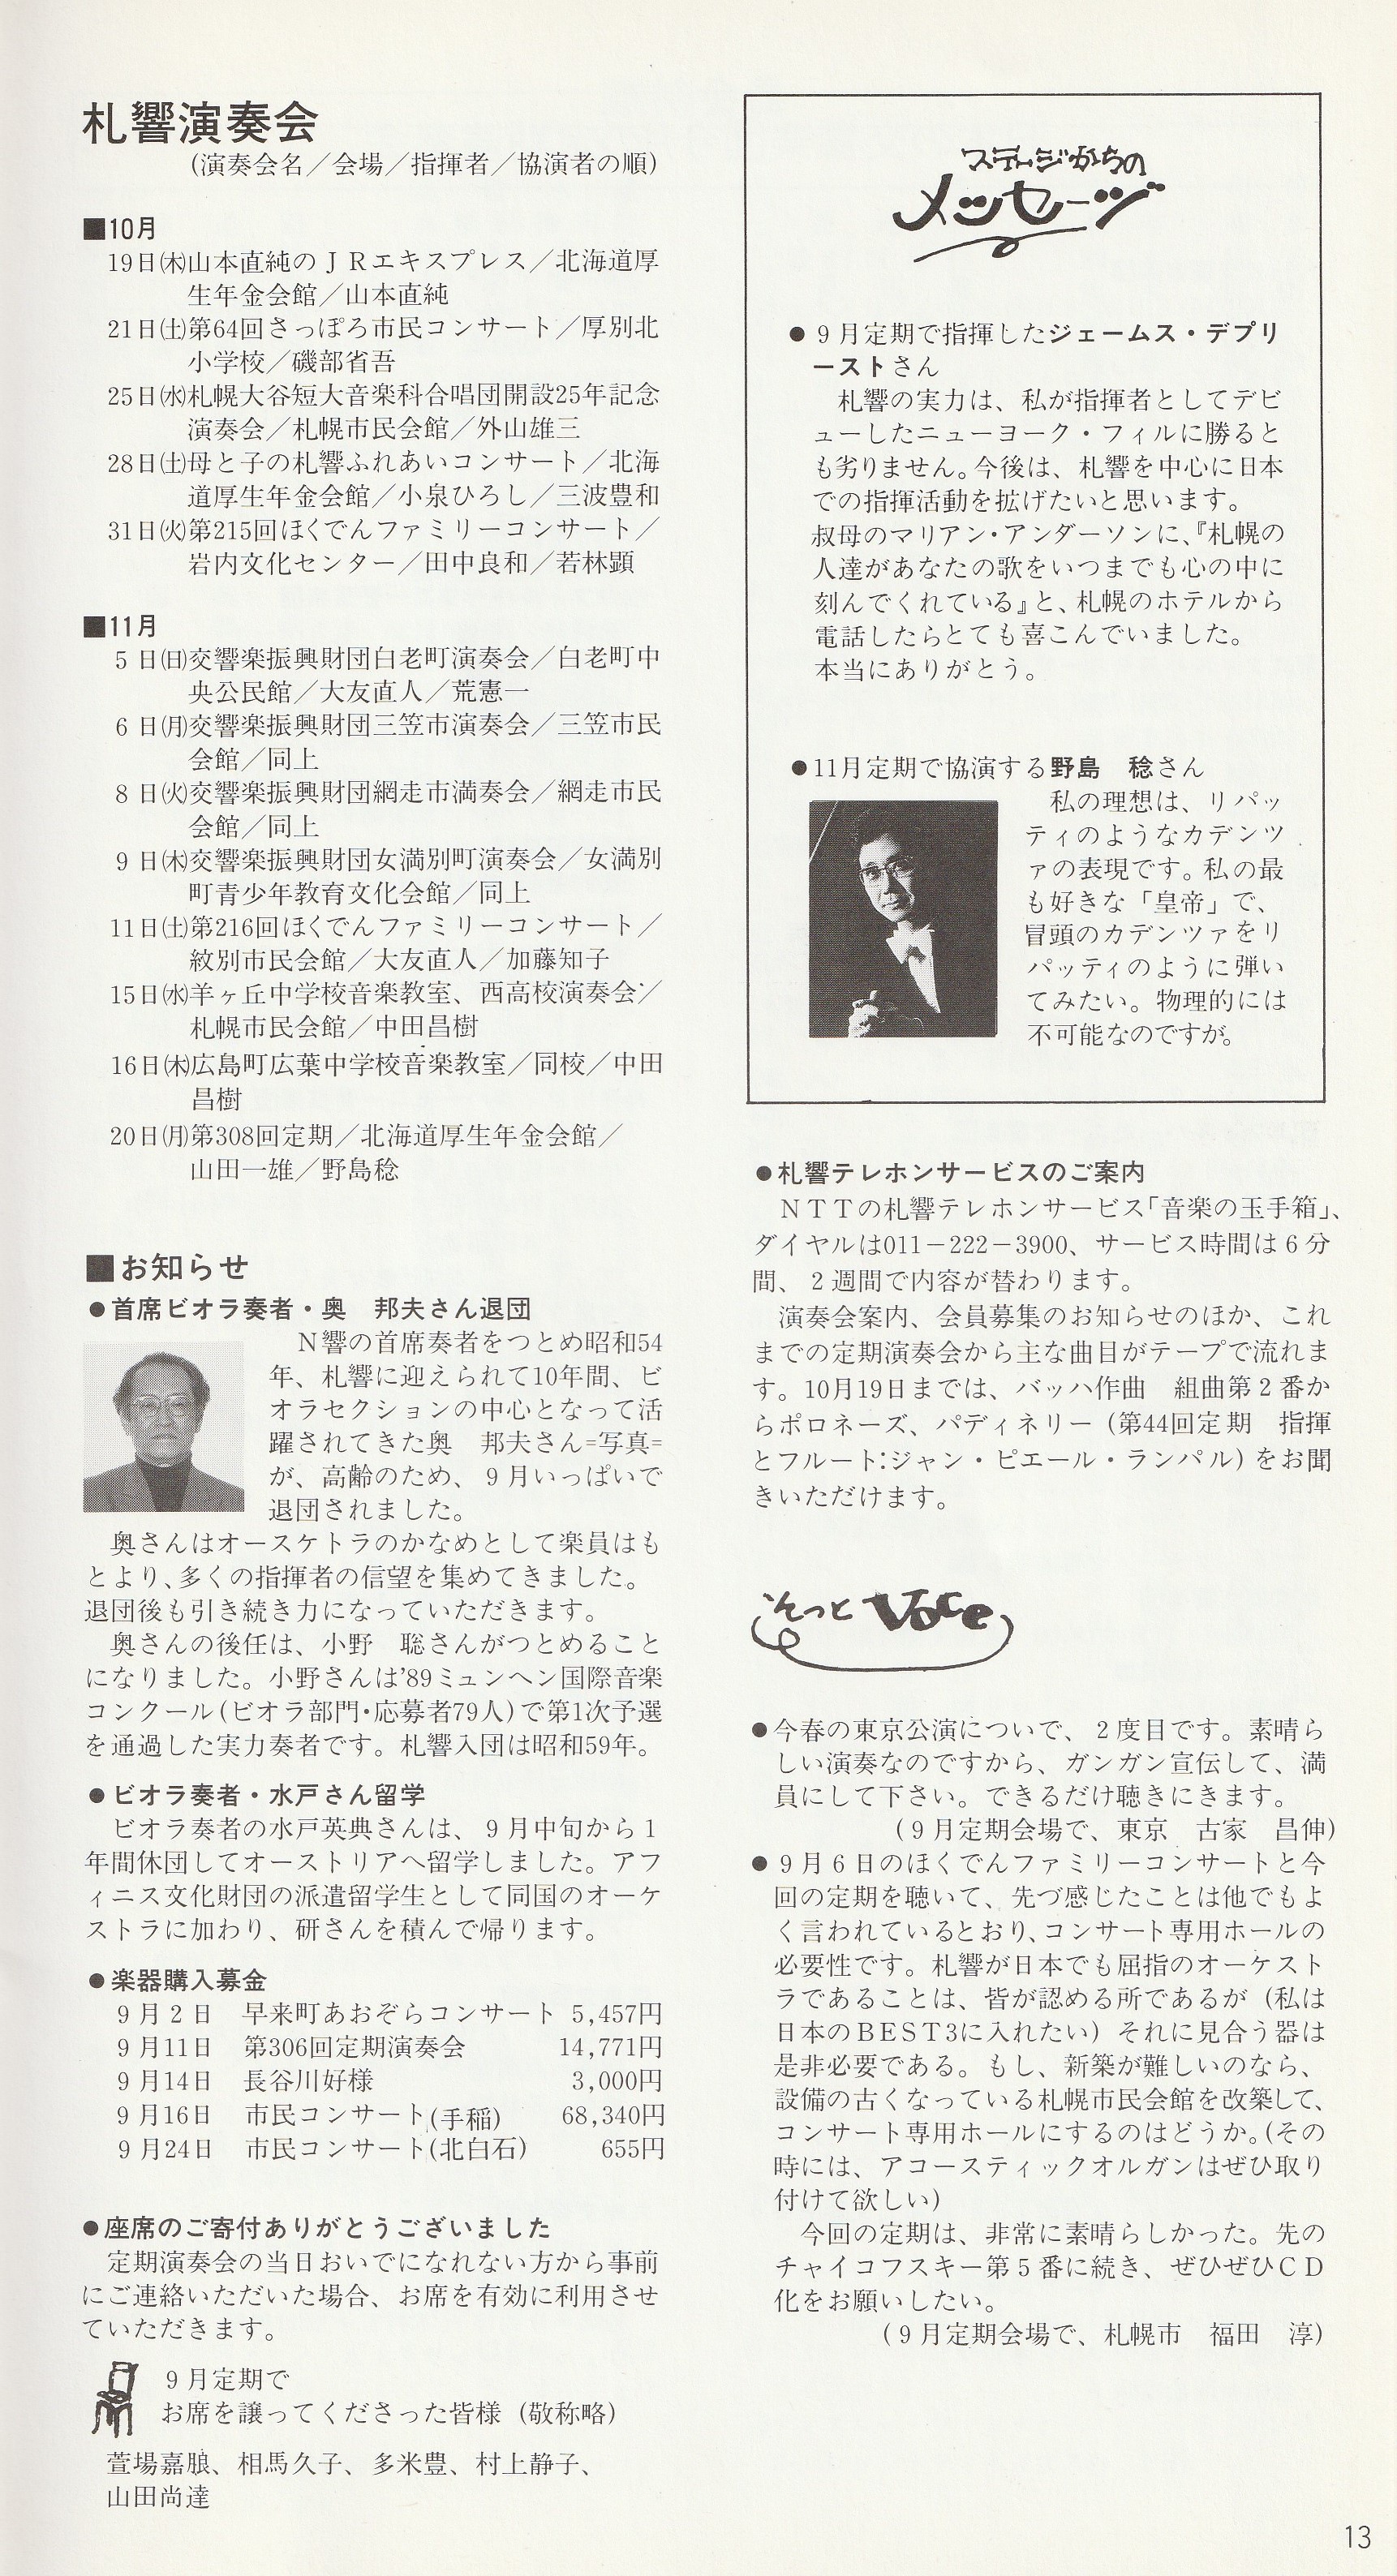 札響演奏会
(演奏会名／会場／指揮者／協演者の順)
■10月
19日㈭山本直純のＪＲエキスプレス／北海道厚
生年金会館／山本直純
21日㈯第64回さっぽろ市民コンサート／厚別北
小学校／磯部省吾
25日㈬札幌大谷短大音楽科合唱団開設25年記念
演奏会／札幌市民会館／外山雄三
28日㈯母と子の札響ふれあいコンサート／北海
道厚生年金会館／小泉ひろし／三波豊和
31日㈫第215回ほくでんファミリーコンサート／
岩内文化センター／田中良和／若林顕
■11月
5 日㈰交響楽振興財団白老町演奏会／白老町中
央公民館／大友直人／荒憲一
6 日㈪交響楽振興財団三笠市演奏会／三笠市民
会館／同上
8 日㈫交響楽振興財団網走市満奏会／網走市民
会館／同上
9 日㈭交響楽振興財団女満別町演奏会／女満別
町青少年教育文化会館／同上
11日㈯第216回ほくでんファミリーコンサート／
紋別市民会館／大友直人／加藤知子
15日㈬羊ヶ丘中学校音楽教室、西高校演奏会／
札幌市民会館／中田昌樹
16日㈭広島町広葉中学校音楽教室／同校／中田
昌樹
20日㈪第308回定期／北海道厚生年金会館／
山田一雄／野島稔
■お知らせ
●首席ビオラ奏者・奥　邦夫さん退団
Ｎ響の首席奏者をつとめ昭和54
年、札響に迎えられて10年間、ビ
オラセクションの中心となって活
躍されてきた奥　邦夫さん=写真=
が、高齢のため、９月いっぱいで
退団されました。
奥さんはオースケトラのかなめとして楽員はも
とより、多くの指揮者の信望を集めてきました。
退団後も引き続き力になっていただきます。
奥さんの後任は、小野　聡さんがつとめること
になりました。小野さんは'89ミュンヘン国際音楽
コンクール(ビオラ部門・応募者79人)で第1次予選
を通過した実力奏者です。札響入団は昭和59年。
●ビオラ奏者・水戸さん留学
ビオラ奏者の水戸英典さんは、９月中旬から１
年間休団してオーストリアへ留学しました。アフ
ィニス文化財団の派遣留学生として同国のオーケ
ストラに加わり、研さんを積んで帰ります。
●楽器購入募金
９月２日　早来町あおぞらコンサート　5,457円
９月11日　第306回定期演奏会　14,771円
９月14日　長谷川好様　3,000円
９月16日　市民コンサート(手稲)　68,340円
９月24日　市民コンサート(北白石)　655円
●座席のご寄付ありがとうございました
定期演奏会の当日おいでになれない方から事前
にご連絡いただいた場合、お席を有効に利用させ
ていただきます。
９月定期で
お席を譲ってくださった皆様（敬称略）
萱場嘉、相馬久子、多米豊、村上静子、
山田尚達
ステージからの
メッセージ
●９月定期で指揮したジェームス・デプリ
ーストさん
札響の実力は、私が指揮者としてデビ
ューしたニューヨーク・フィルに勝ると
も劣りません。今後は、札響を中心に日本
での指揮活動を拡げたいと思います。
叔母のマリアン・アンダーソンに、『札幌の
人達があなたの歌をいつまでも心の中に
刻んでくれている』と、札幌のホテルから
電話したらとても喜こんでいました。
本当にありがとう。
●11月定期で協演する野島　稔さん
私の理想は、リパッ
ティのようなカデンツ
ァの表現です。私の最
も好きな「皇帝」で、
冒頭のカデンツァをリ
パッティのように弾い
てみたい。物理的には
不可能なのですが。
●札響テレホンサービスのご案内
ＮＴＴの札響テレホンサービス「音楽の玉手箱」、
ダイヤルは011－222－3900、サービス時間は６分
間、２週間で内容が替わります。
演奏会案内、会員募集のお知らせのほか、これ
までの定期演奏会から主な曲目がテープで流れま
す。10月19日までは、バッハ作曲　組曲第２番か
らポロネーズ、パディネリー（第44回定期　指揮
とフルート:ジャン・ピエール・ランパル）をお聞
きいただけます。
そっと Voce
●今春の東京公演についで、２度目です。素晴ら
しい演奏なのですから、ガンガン宣伝して、満
員にして下さい。できるだけ聴きにきます。
（９月定期会場で、東京　古家　昌伸）
●９月６日のほくでんファミリーコンサートと今
回の定期を聴いて、先づ感じたことは他でもよ
く言われているとおり、コンサート専用ホールの
必要性です。札響が日本でも屈指のオーケスト
ラであることは、皆が認める所であるが（私は
日本のＢＥＳＴ3に入れたい）それに見合う器は
是非必要である。もし、新築が難しいのなら、
設備の古くなっている札幌市民会館を改築して、
コンサート専用ホールにするのはどうか。（その
時には、アコースティックオルガンはぜひ取り
付けて欲しい）
今回の定期は、非常に素晴らしかった。先の
チャイコフスキー第５番に続き、ぜひぜひＣＤ
化をお願いしたい。
（９月定期会場で、札幌市　福田　淳）
13